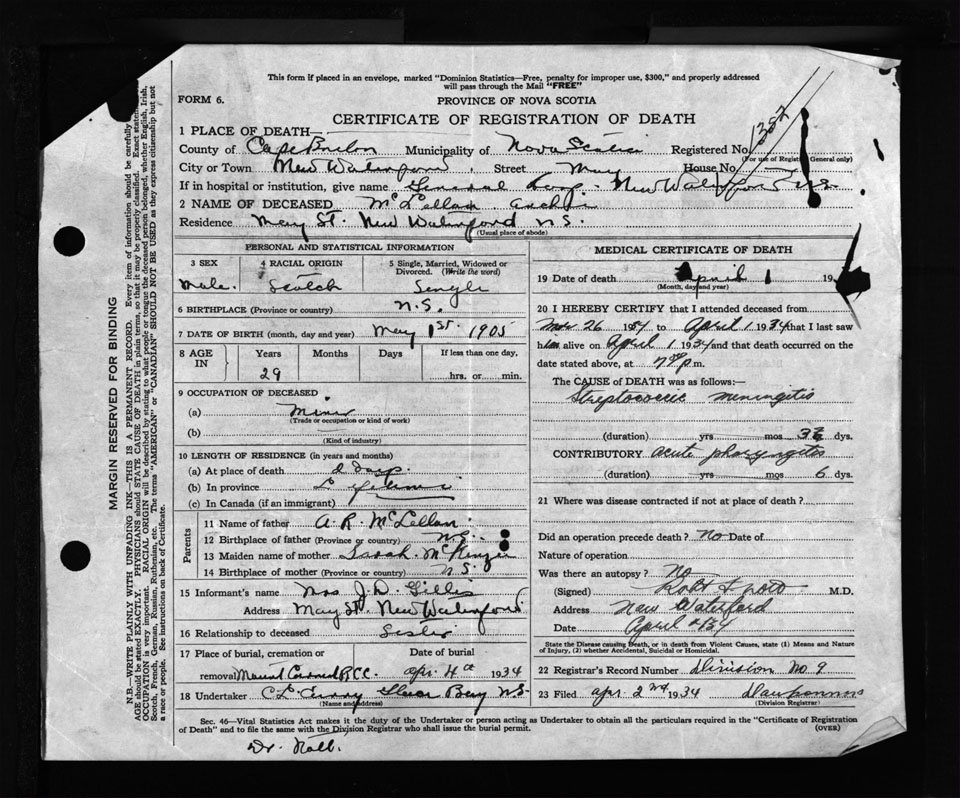 This form if placed in an envelope, marked "Dominion Statistics—Free, penalty for improper use, $300," and properly addressed
will pass through the Mail "FREE"
FORM 6.
PROVINCE OF NOVA SCOTIA
CERTIFICATE OF REGISTRATION OF DEATH
1382
1 PLACE OF DEATH—
County of Cape Breton Municipality of Nova Scotia Registered No.
(For use of Registrar General only)
City or Town New Waterford, Street May House No.
If in hospital or institution, give name General Hosp. New Waterford N.S.
2 NAME OF DECEASED McLellan Archie
Residence May St. New Waterford N.S.
(Usual place of abode)
PERSONAL AND STATISTICAL INFORMATION
3 SEX 4 RACIAL ORIGIN 5 Single, Married, Widowed or
Divorced. (Write the word)
Male. Scotch Single
6 BIRTHPLACE (Province or country) N.S.
7 DATE OF BIRTH (month, day and year) May 1st 1905
8 AGE IN Years Months Days If less than one day,
29 hrs. or min.
9 OCCUPATION OF DECEASED
(a) Miner
(Trade or occupation or kind of work)
(b)
(Kind of industry)
10 LENGTH OF RESIDENCE (in years and months)
(a) At place of death days.
(b) In province Lifetime
(c) In Canada (if an immigrant)
Parents
11 Name of father A. R. McLellan
12 Birthplace of father (Province or country) N.S.
13 Maiden name of mother Sarah McKenzie
14 Birthplace of mother (Province or country) N.S.
15 Informant's name Mrs J. D. Gillis
Address May St. New Waterford
16 Relationship to deceased Sister
17 Place of burial, cremation or Date of burial
removal Mount Carmel R.C.C. Apr. 4th 1934
18 Undertaker C. L. Curry Glace Bay N.S.
(Name and address)
MEDICAL CERTIFICATE OF DEATH
19 Date of death April 1 19
(Month, day and year)
20 I HEREBY CERTIFY that I attended deceased from
26 1934 to April 1 1934 that I last saw
him alive on April 1 1934 and that death occurred on the
date stated above, at 7 p m.
The CAUSE of DEATH was as follows:—
Streptococcic meningitis
(duration) yrs mos dys.
CONTRIBUTORY acute pharyngitis
(duration) yrs mos 6 dys.
21 Where was disease contracted if not at place of death?
Did an operation precede death? no Date of
Nature of operation
Was there an autopsy? no
(Signed) M.D.
Address New Waterford
Date April 2/34
State the Disease causing Death, or in death from Violent Causes, state (1) Means and
Nature of Injury, (2) whether Accidental, Suicidal or Homicidal.
22 Registrar's Record Number Division No. 9
23 Filed Apr. 2nd 1934
(Division Registrar)
Sec. 46—Vital Statistics Act makes it the duty of the Undertaker or person acting as Undertaker to obtain all the particulars required in the "Certificate of Registration
of Death" and to file the same with the Division Registrar who shall issue the burial permit.
(OVER)
Dr.
MARGIN RESERVED FOR BINDING
N.B.—WRITE PLAINLY WITH UNFADING INK—THIS IS A PERMANENT RECORD. Every item of information should be carefully
AGE should be stated EXACTLY. PHYSICIANS should STATE CAUSE OF DEATH in plain terms, so that it may be properly classified. Exact
OCCUPATION is very important. RACIAL ORIGIN will be described by stating to what people or tongue the deceased person belonged, whether English, Irish,
Scotch, French, German, Russian, Ruthenian, etc. The terms "AMERICAN" or "CANADIAN" SHOULD NOT BE USED as they express citizenship but not
a race or people. See instructions on back of Certificate.